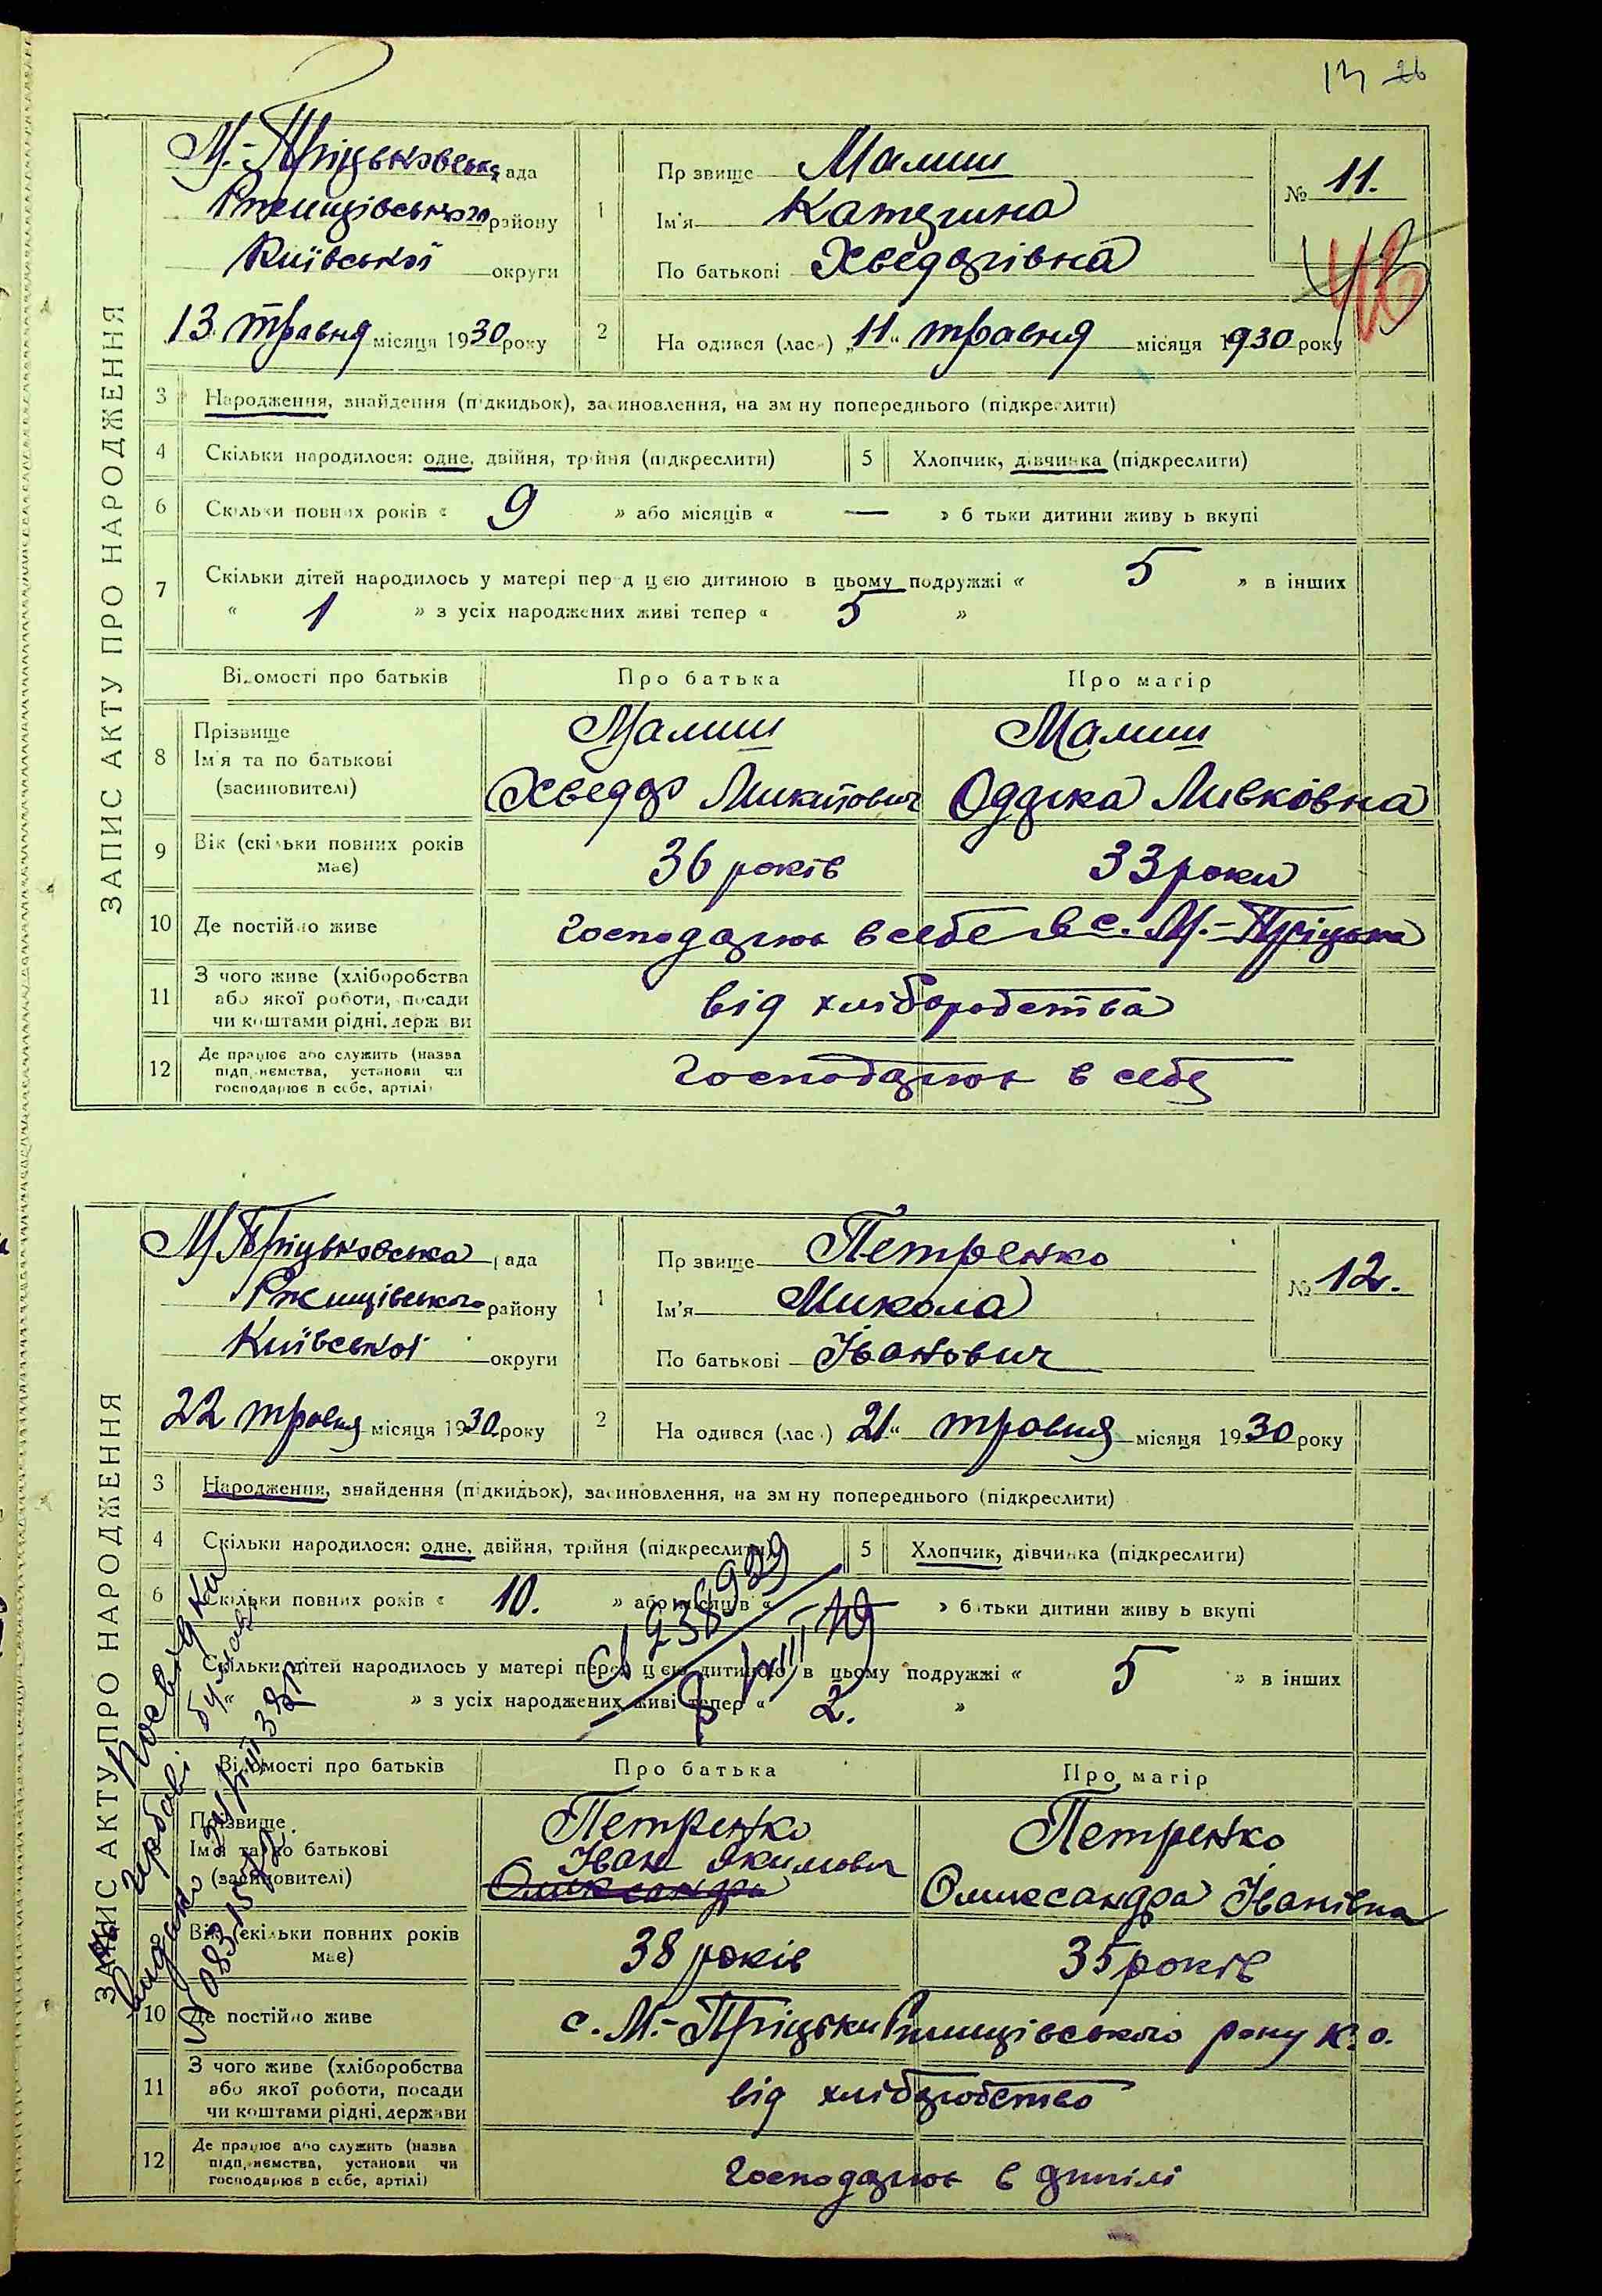 13 26
М.-Пріцьковська рада
Ржищівського району
Київської округи
13 травня місяця 1930 року
ЗАПИС АКТУ ПРО НАРОДЖЕННЯ
1
Прізвище Малиш
Ім'я Катерина
По батькові Хведорівна
№ 11.
2 На одився (лас.) „11“ травня місяця 1930 року
3 Народження, знайдення (підкидьок), засиновлення, на зм ну попереднього (підкреслити)
4 Скільки народилося: одне, двійня, трійня (підкреслити) 5 Хлопчик, дівчинка (підкреслити)
6 Скільки повних років « 9 » або місяців « — » б тьки дитини живу ь вкупі
7 Скільки дітей народилось у матері перед цією дитиною в цьому подружжі « 5 » в інших
« 1 » з усіх народжених живі тепер « 5 »
Відомості про батьків Про батька Про матір
8 Прізвище Малиш Малиш
Ім'я та по батькові Хведор Микитович Оддрка Ливковна
(засиновителі)
9 Вік (скільки повних років має) 36 років 33 роки
10 Де постійно живе господарює в себе в с. М.-Пріцька
11 З чого живе (хліборобства
або якої роботи, посади від хліборобства
чи коштами рідні, держави
12 Де працює або служить (назва
підприємства, установи чи господарює в себе
господарює в себе, артілі)
М Пріцьковська рада
Ржищівського району
Київської округи
22 травня місяця 1930 року
ЗАПИС АКТУ ПРО НАРОДЖЕННЯ
1
Прізвище Петренко
Ім'я Микола
По батькові Іванович
№ 12.
2 На одився (лас.) 21“ травня місяця 1930 року
3 Народження, знайдення (підкидьок), засиновлення, на зм ну попереднього (підкреслити)
4 Скільки народилося: одне, двійня, трійня (підкреслити) 5 Хлопчик, дівчинка (підкреслити)
6 Скільки повних років « 10. » або місяців « — » батьки дитини живу ь вкупі
Скільки дітей народилось у матері перед цією дитиною в цьому подружжі « 5 » в інших
« » з усіх народжених живі тепер « 2. »
Відомості про батьків Про батька Про матір
Прізвище Петренко Петренко
Ім'я та по батькові Іван Якимович Олександра Іванівна
(засиновителі) Олександра
Вік (скільки повних років має) 38 років 35 років
10 Де постійно живе с. М.-Пріцьки Ржищівського рону К. о.
11 З чого живе (хліборобства
або якої роботи, посади від хліборобство
чи коштами рідні, держави
12 Де працює або служить (назва
підприємства, установи чи господарює в
господарює в себе, артілі)